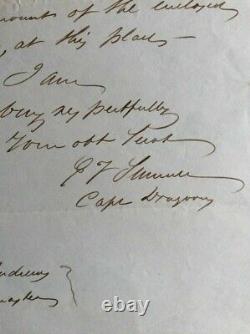 mounts of the enclosed
, at this place—
I am
Very respectfully
Your obt Servt
E V Sumner
Capt Dragoons
Andrews
master
ebay